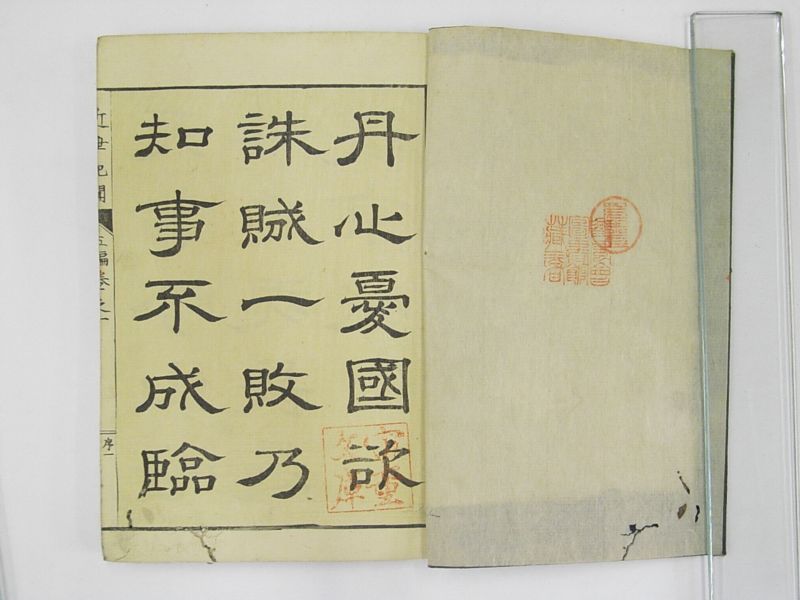 丹心憂國欲
誅賊一敗乃
知事不成臨
近世紀聞
五編卷之一
序一